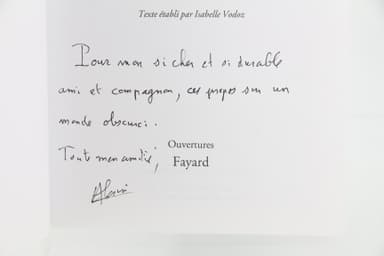 Texte établi par Isabelle Vodoz
Pour mon si cher et si durable
ami et compagnon, ces propos sur un
monde obscurci.
Tout mon amitié,
Ouvertures
Fayard
Alain